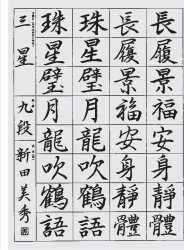 長履景福安身靜體
長履景福安身靜體
珠星璧月龍吹鶴語
珠星璧月龍吹鶴語
三星 九段 新田美秀